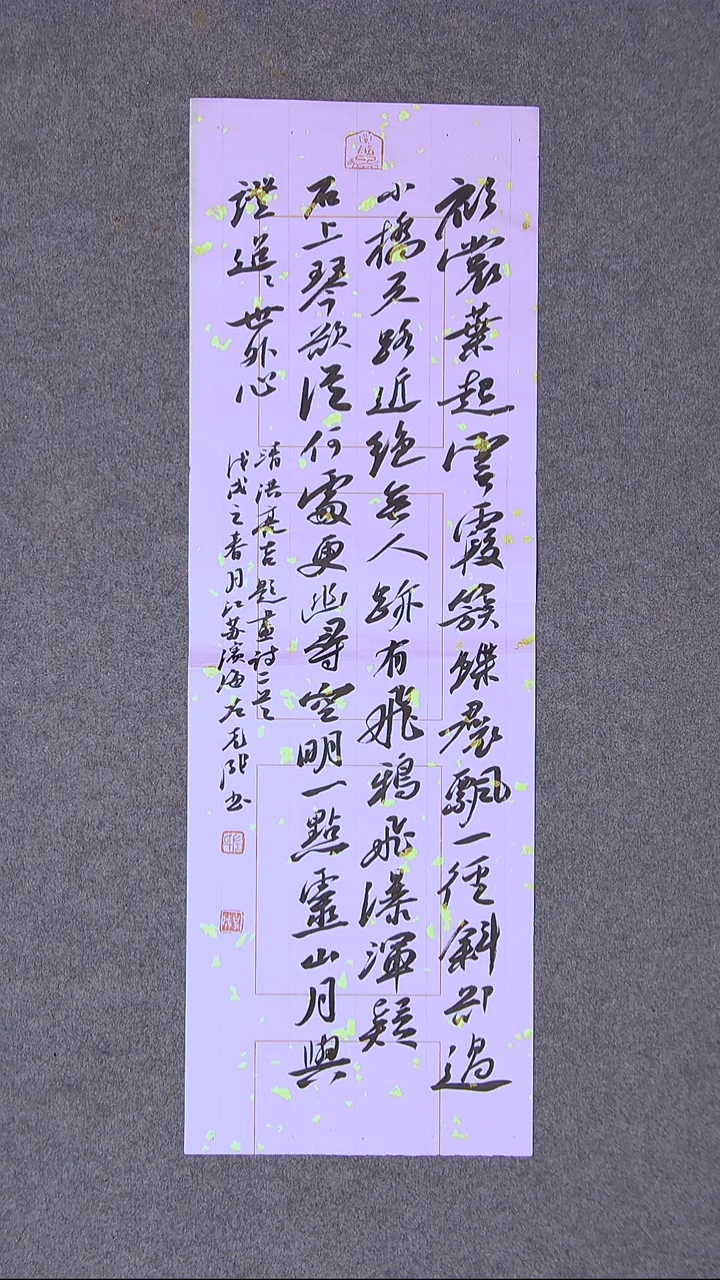 衫裳葉起雲霞簇蝶裙飄一徑斜却過
小橋天路近絕無人跡有飛鴉飛瀑渾疑
石上琴欲從何處更幽尋空明一點靈山月與
證迢々世外心
清洪亮吉題畫詩二首
戊戌之春月江苏濱海左克书